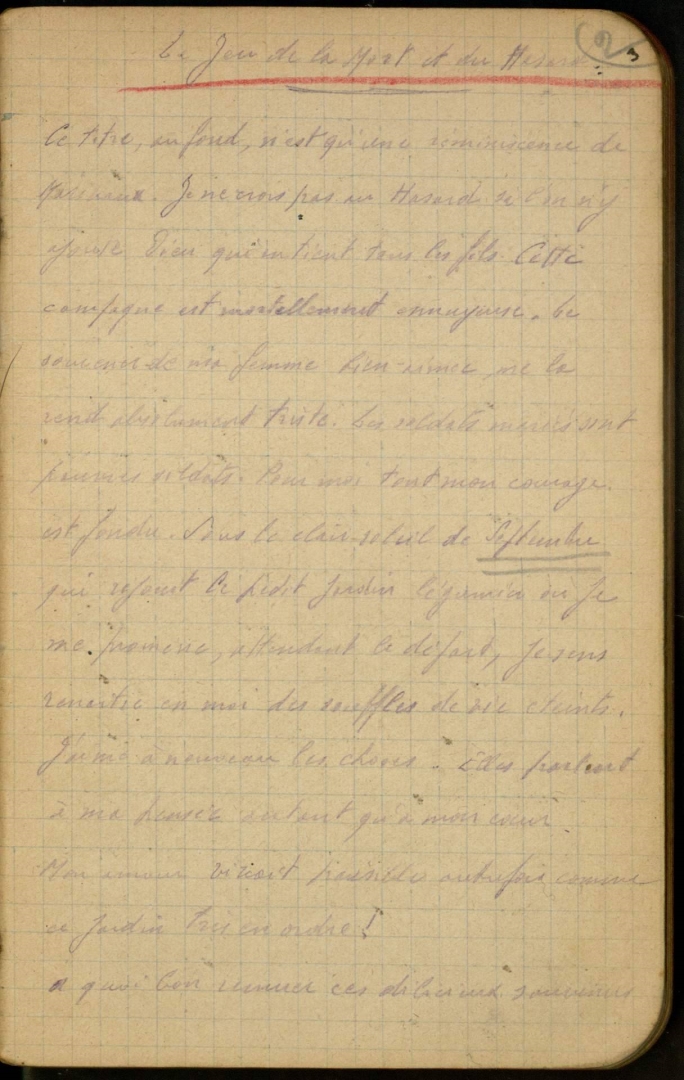 2
3
Le Jeu de la Mort et du Hasard
Ce titre, au fond, n'est qu'une réminiscence de
Marivaux. Je ne crois pas au Hasard si l'on n'y
ajoute Dieu qui en tient tous les fils. Cette
campagne est mortellement ennuyeuse. Le
souvenir de ma femme bien-aimée me la
rend absolument triste. Les soldats mariés sont
pauvres soldats. Pour moi tout mon courage
est fondu. Sous le clair soleil de Septembre
qui réjouit le petit jardin légumier où je
me promène, attendant le départ, je sens
renaître en moi des souffles de vie éteints.
J'aime à nouveau les choses. Elles parlent
à ma pensée autant qu'à mon cœur
Mon amour vivait paisible autrefois comme
ce jardin très en ordre !
A quoi bon remuer ces délicieux souvenirs